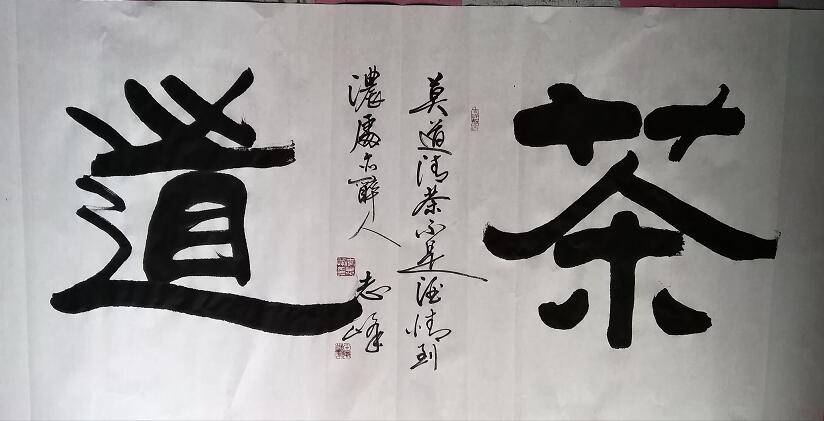 茶
莫道清茶不是酒情到
濃處亦醉人
志峰
道